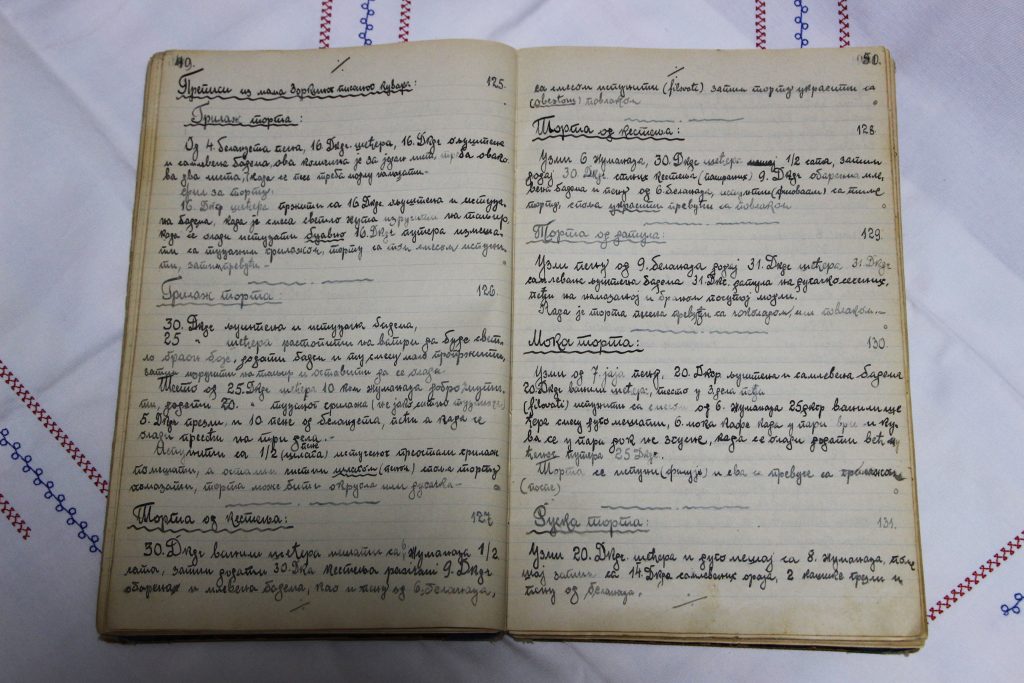 49.
Преписи из мама Зоркиног писаног кувара: 125.
Грилаж торта:
Од 4. беланцета пена, 16. Дкгр. шећера, 16. Дкгр. ољуштена
и самлевена бадема ова количина је за један лист, треба овако-
ва два листа, када се пече треба подму намазати.-
фил за торту.
16. Дкгр шећера пржити са 16. Дкгр. ољуштена и исеца-
на бадема, када је смеса светло жута изручити на тањир,
када се олади истуцати 16. Дкгр. путера измеша-
ти са туцаним грилажом, торту са том смесом испуни-
ти, затим превући.-
Грилаж торта: 126.
30. Дкгр. љуштена и истуцана бадема,
25 " шећера растопити на ватри да буде свет-
ло браон боје, додати бадем и ту смесу мало пропржити,
затим изручити на тањир и оставити да се олади.
Тесто од 25. Дкгр. шећера 10 ком жуманаца добро мути-
ти, додати 20. " туцаног грилажа (не јако ситно туцаног)
5. Дкгр. презли, и 10 пене од беланцета, пећи а када се
олади пресећи на три дела.-
Испунити са 1/2 л. пене (шлага) испуњеног преостали грилаж
помешати, а осталим чистим шлагом (пеном) споља торту
намазати, торта може бити округла или дугачка.-
Торта од кестења: 127
30. Дкгр ванили шећера мешати са 6 жуманаца 1/2
сата, затим додати 30. Дкг кестења 9. Дкгр
обарена и млевена бадема, као и пену од 6. беланаца,
50.
са смесом испунити (filovati) затим торту украсити са
повлаком
Торта од кестења: 128.
Узми 6 жуманаца, 30. Дкгр шећера мешај 1/2 сата, затим
додај 30. Дкгр. кестена 9. Дкгр обарена мле-
вена бадема и пену од 6 беланаца, испунити (филовати) са тиме
торту, споља украсити превући са повлаком
Торта од датула: 129.
Узми пену од 9. беланаца додај 31. Дкгр шећера 31. Дкгр
самлевана љуштена бадема 31 Дкг. датула на дугачко сечених,
пећи на намазаној и брашном посутој модли.
Када је торта печена превући са чоколадом, или повлаком.-
Мока торта: 130.
Узми од 7. јаја пену, 20. Дкгр љуштена и самлевена бадема
20. Дкгр ванили шећера, тесто у 3 дела пећи
(filovati) испунити са смесом од 6. жуманаца 25 дкгр ванили ше-
ћера смесу дуго мешати, 6. мока кафе када у пари ври и ку-
ва се у пари док не згусне, када се олади додати већ му-
ћеног путера 25 Дкгр.
Торта се испуни (филује) и ева се превуче са
(после)
Руска торта: 131.
Узми 20. Дкгр. шећера и дуго мешај са 8. жуманаца, поме-
шај затим са 14. Дкгра самлевених ораја, 2 кашике презли и
пену од беланаца.